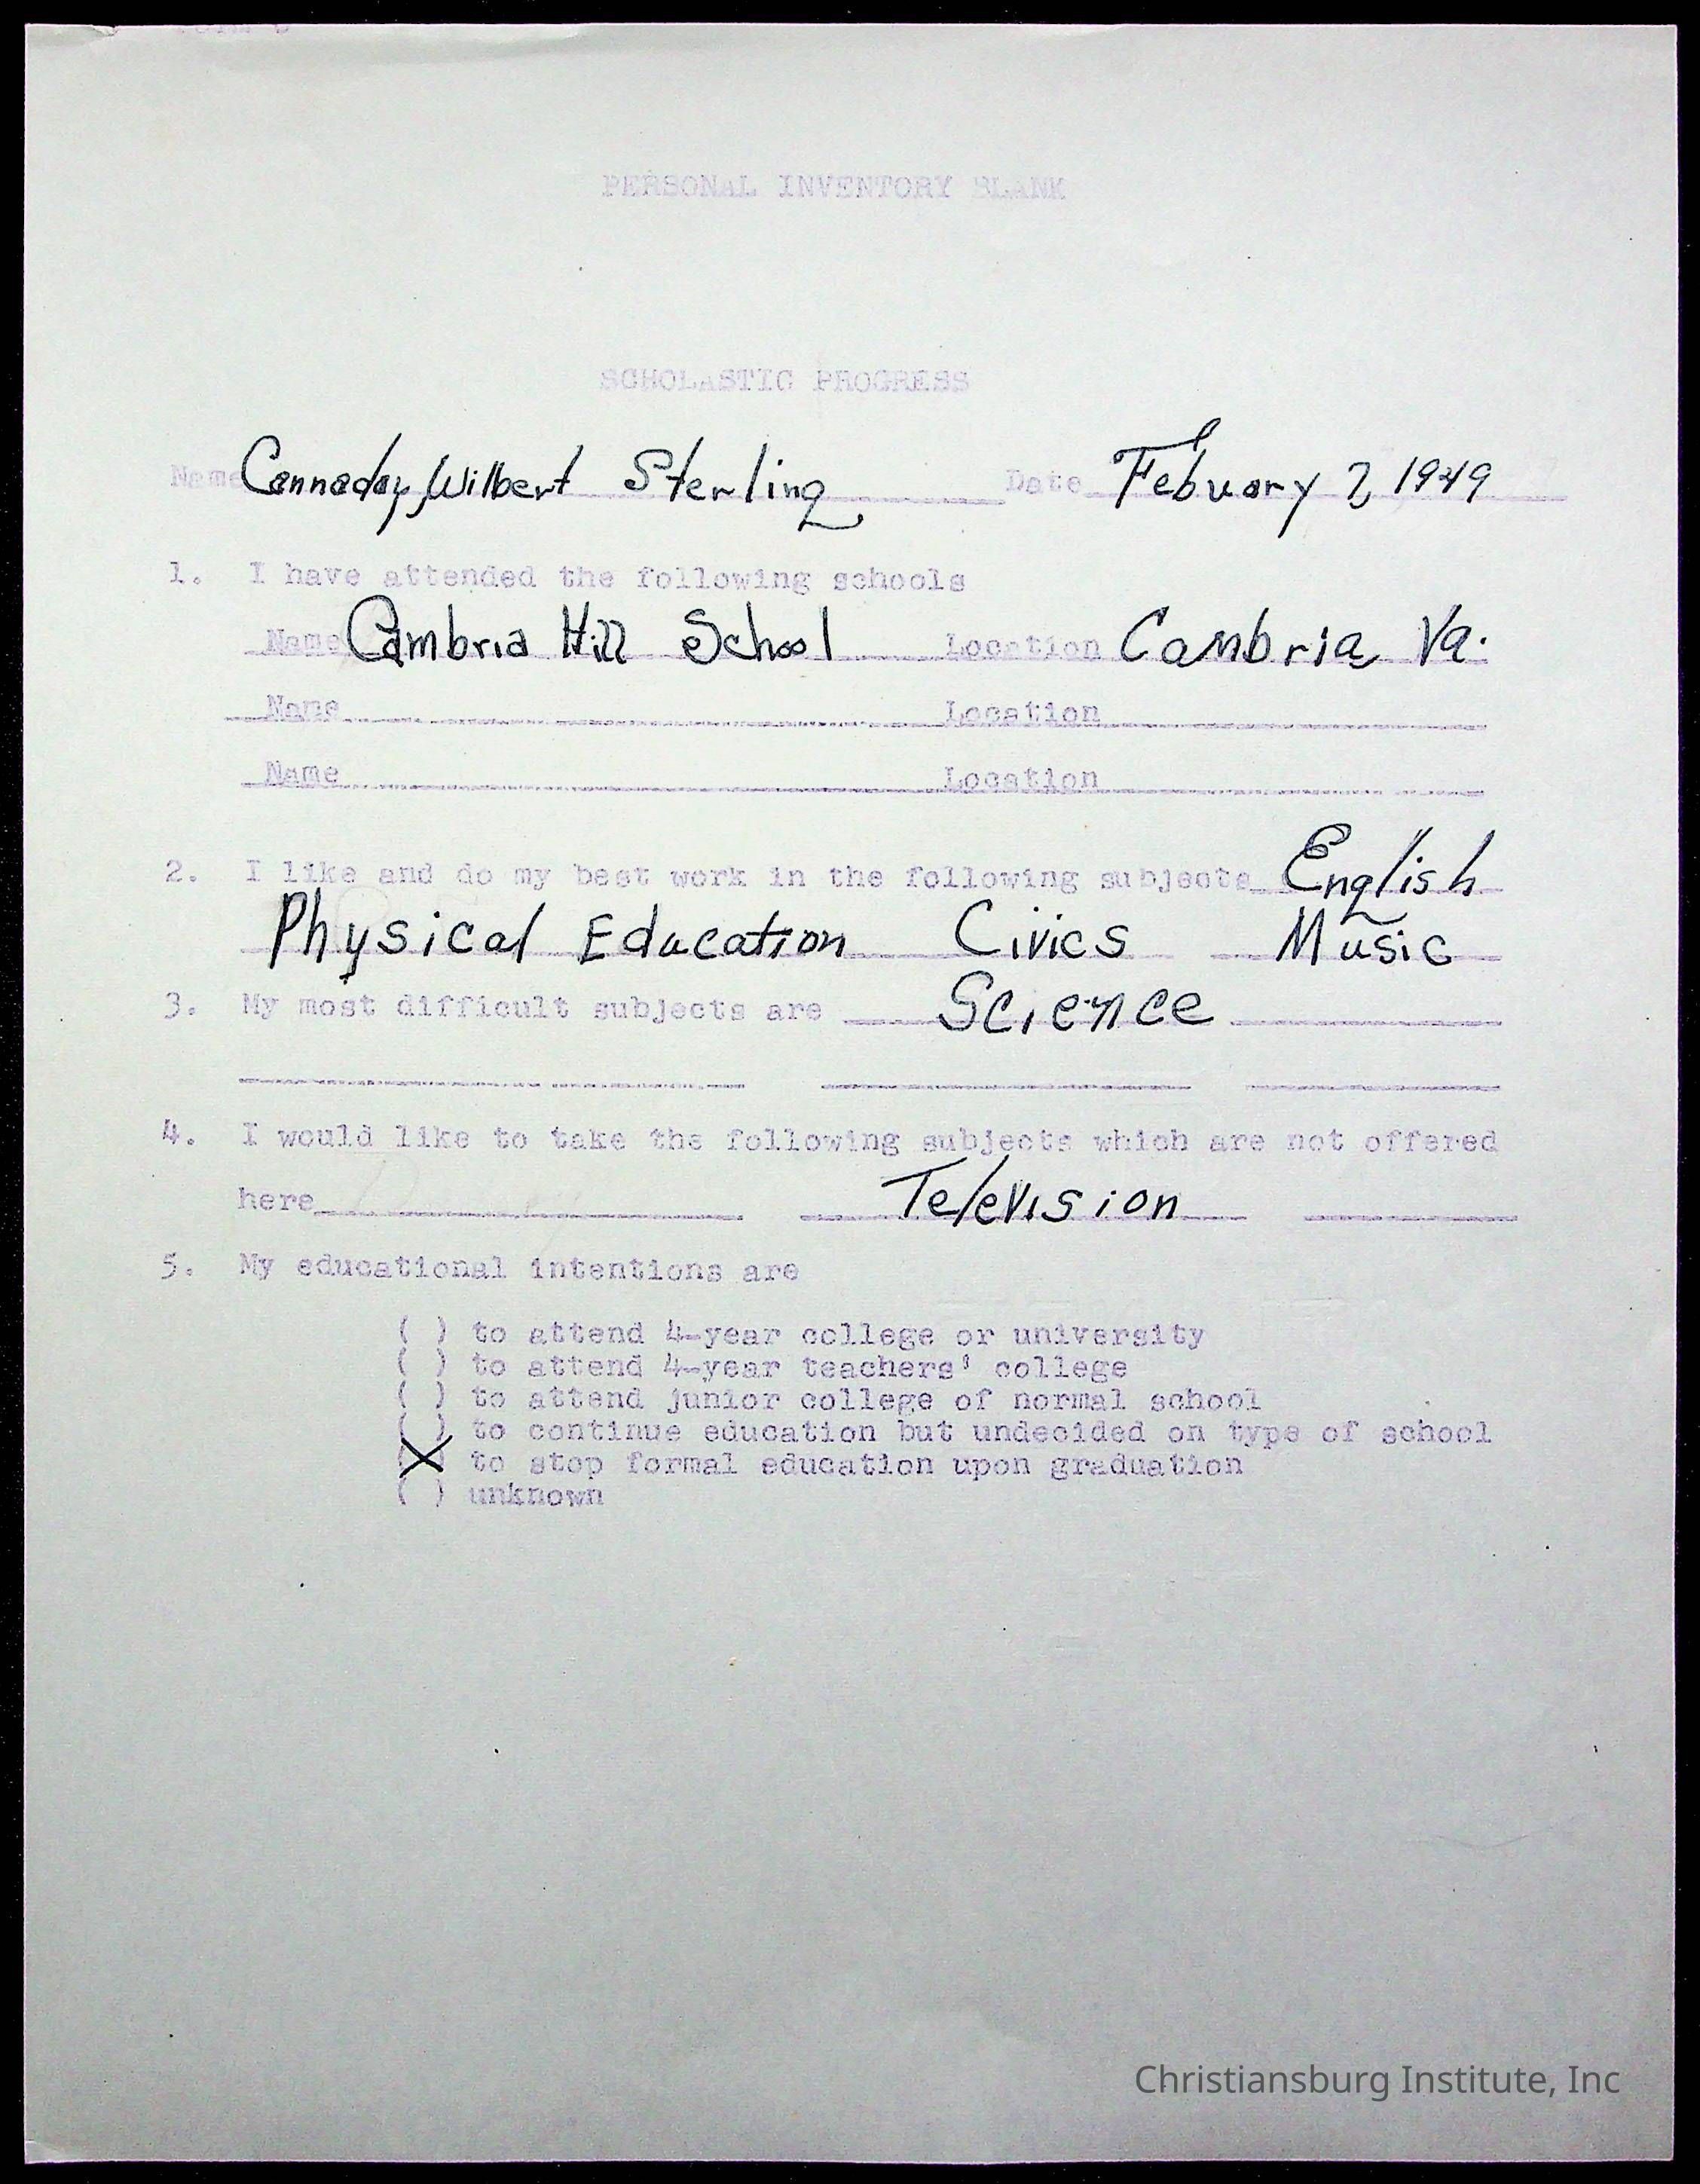 PERSONAL INVENTORY BLANK
SCHOLASTIC PROGRESS
Name Cannaday, Wilbert Sterling Date Febuary 2, 1949
1. I have attended the following schools
Name Cambria Hill School Location Cambria Va.
Name Location
Name Location
2. I like and do my best work in the following subjects English
Physical Education Civics Music
3. My most difficult subjects are Science
4. I would like to take the following subjects which are not offered
here Television
5. My educational intentions are
( ) to attend 4-year college or university
( ) to attend 4-year teachers' college
( ) to attend junior college of normal school
( ) to continue education but undecided on type of school
(X) to stop formal education upon graduation
( ) unknown
Christiansburg Institute, Inc